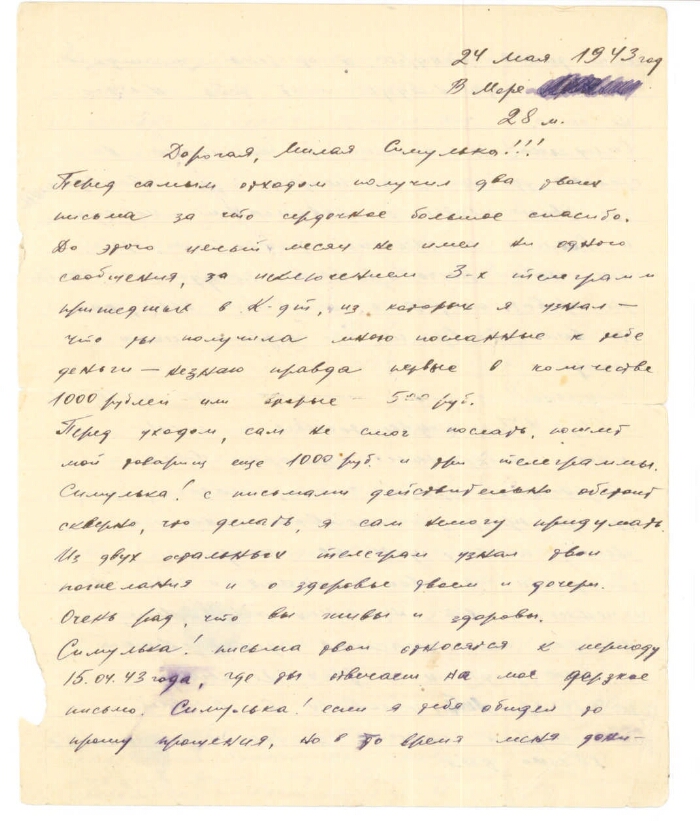 24 мая 1943 год
В Море
28 м.
Дорогая, Милая Симулька!!!
Перед самым отходом получил два твоих
письма за что сердечное большое спасибо.
До этого целый месяц не имел ни одного
сообщения, за исключением 3-х телеграмм
пришедших в К-дт, из которых я узнал —
что ты получила мною посланные к тебе
деньги — незнаю правда первые в количестве
1000 рублей — или вторые — 500 руб.
Перед уходом, сам не смог послать, пошлет
мой товарищ еще 1000 руб. и три телеграммы.
Симулька! с письмами действительно обстоит
скверно, что делать, я сам немогу придумать.
Из двух остальных телеграм узнал твои
пожелания и о здоровье твоем и дочери.
Очень рад, что вы живы и здоровы.
Симулька! письма твои относятся к периоду
15.04.43 года, где ты отвечаеш на мое дерзкое
письмо. Симулька! если я тебя обидел то
прошу прощения, но в то время меня доки-